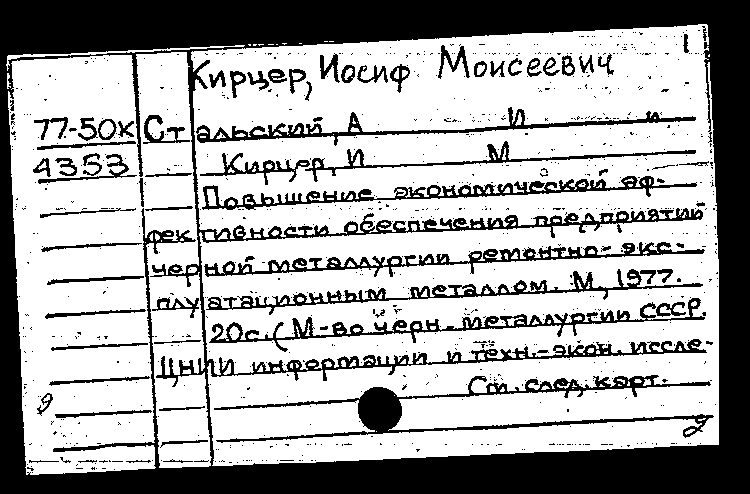 1
Кирцер, Иосиф Моисеевич
77-50к Стальский, А И и
4353 Кирцер, И М
Повышение экономической эф-
фективности обеспечения предприятий
черной металлургии ремонтно-экс-
плуатационным металлом. М, 1977.
20с. (М-во черн. металлургии СССР.
ЦНИИ информации и техн.-экон. иссле-
См. след. карт.